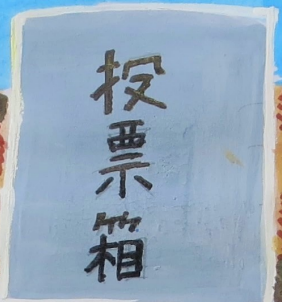 投票箱